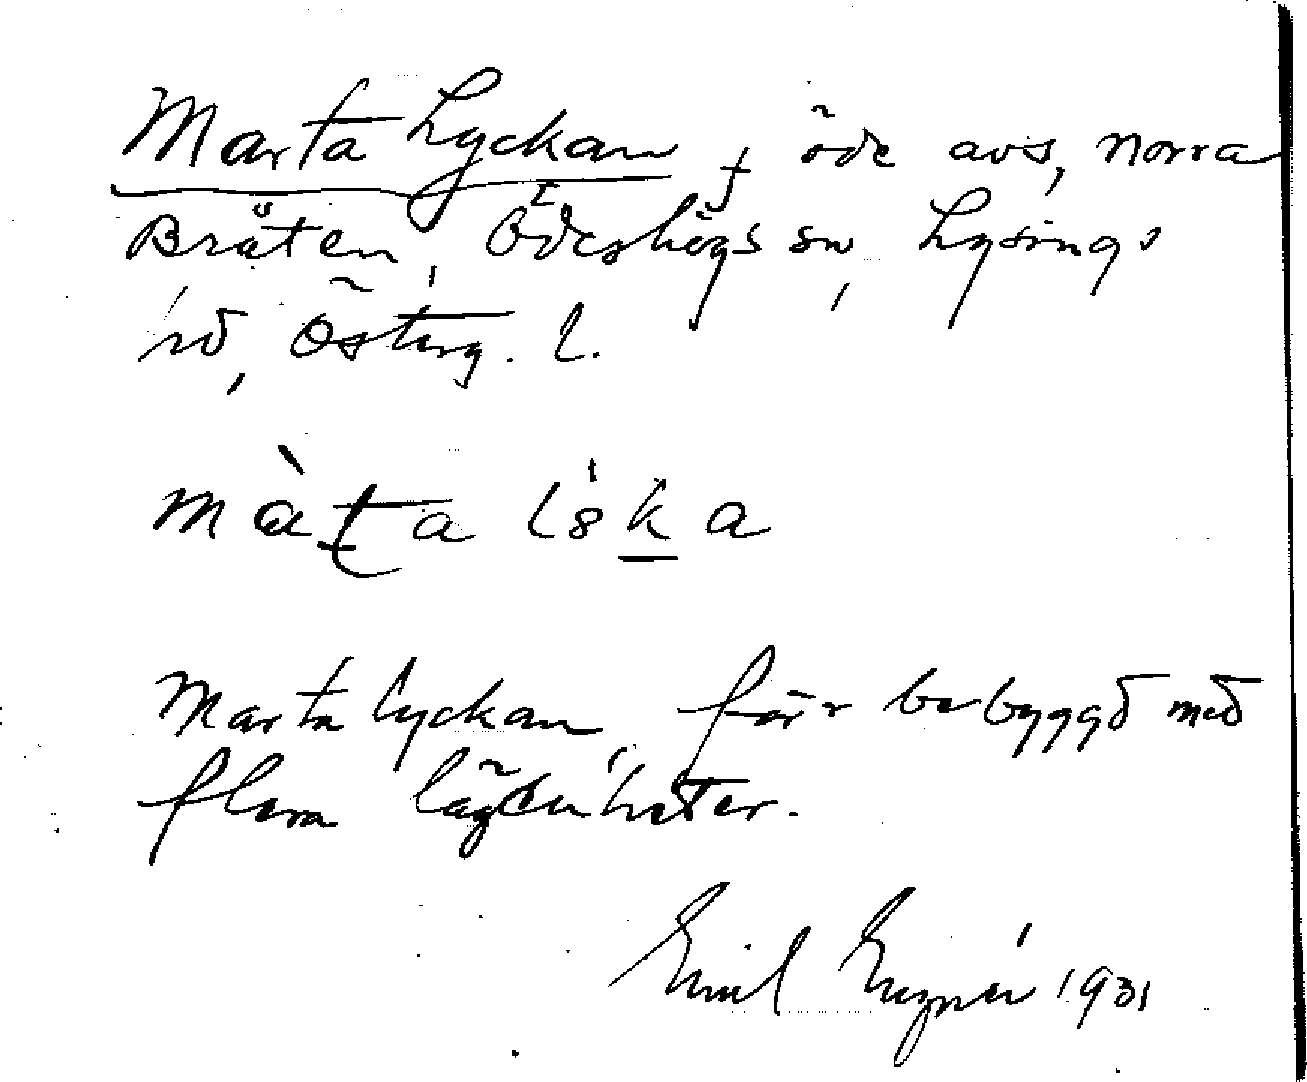 Marta Lyckan, † öde avs, Norra
Bråten, Ödeshögs sn, Lysings
hd, Österg. l.
màta lyka
Marta lyckan, förr bebyggd med
flera lägenheter.
Emil 1931